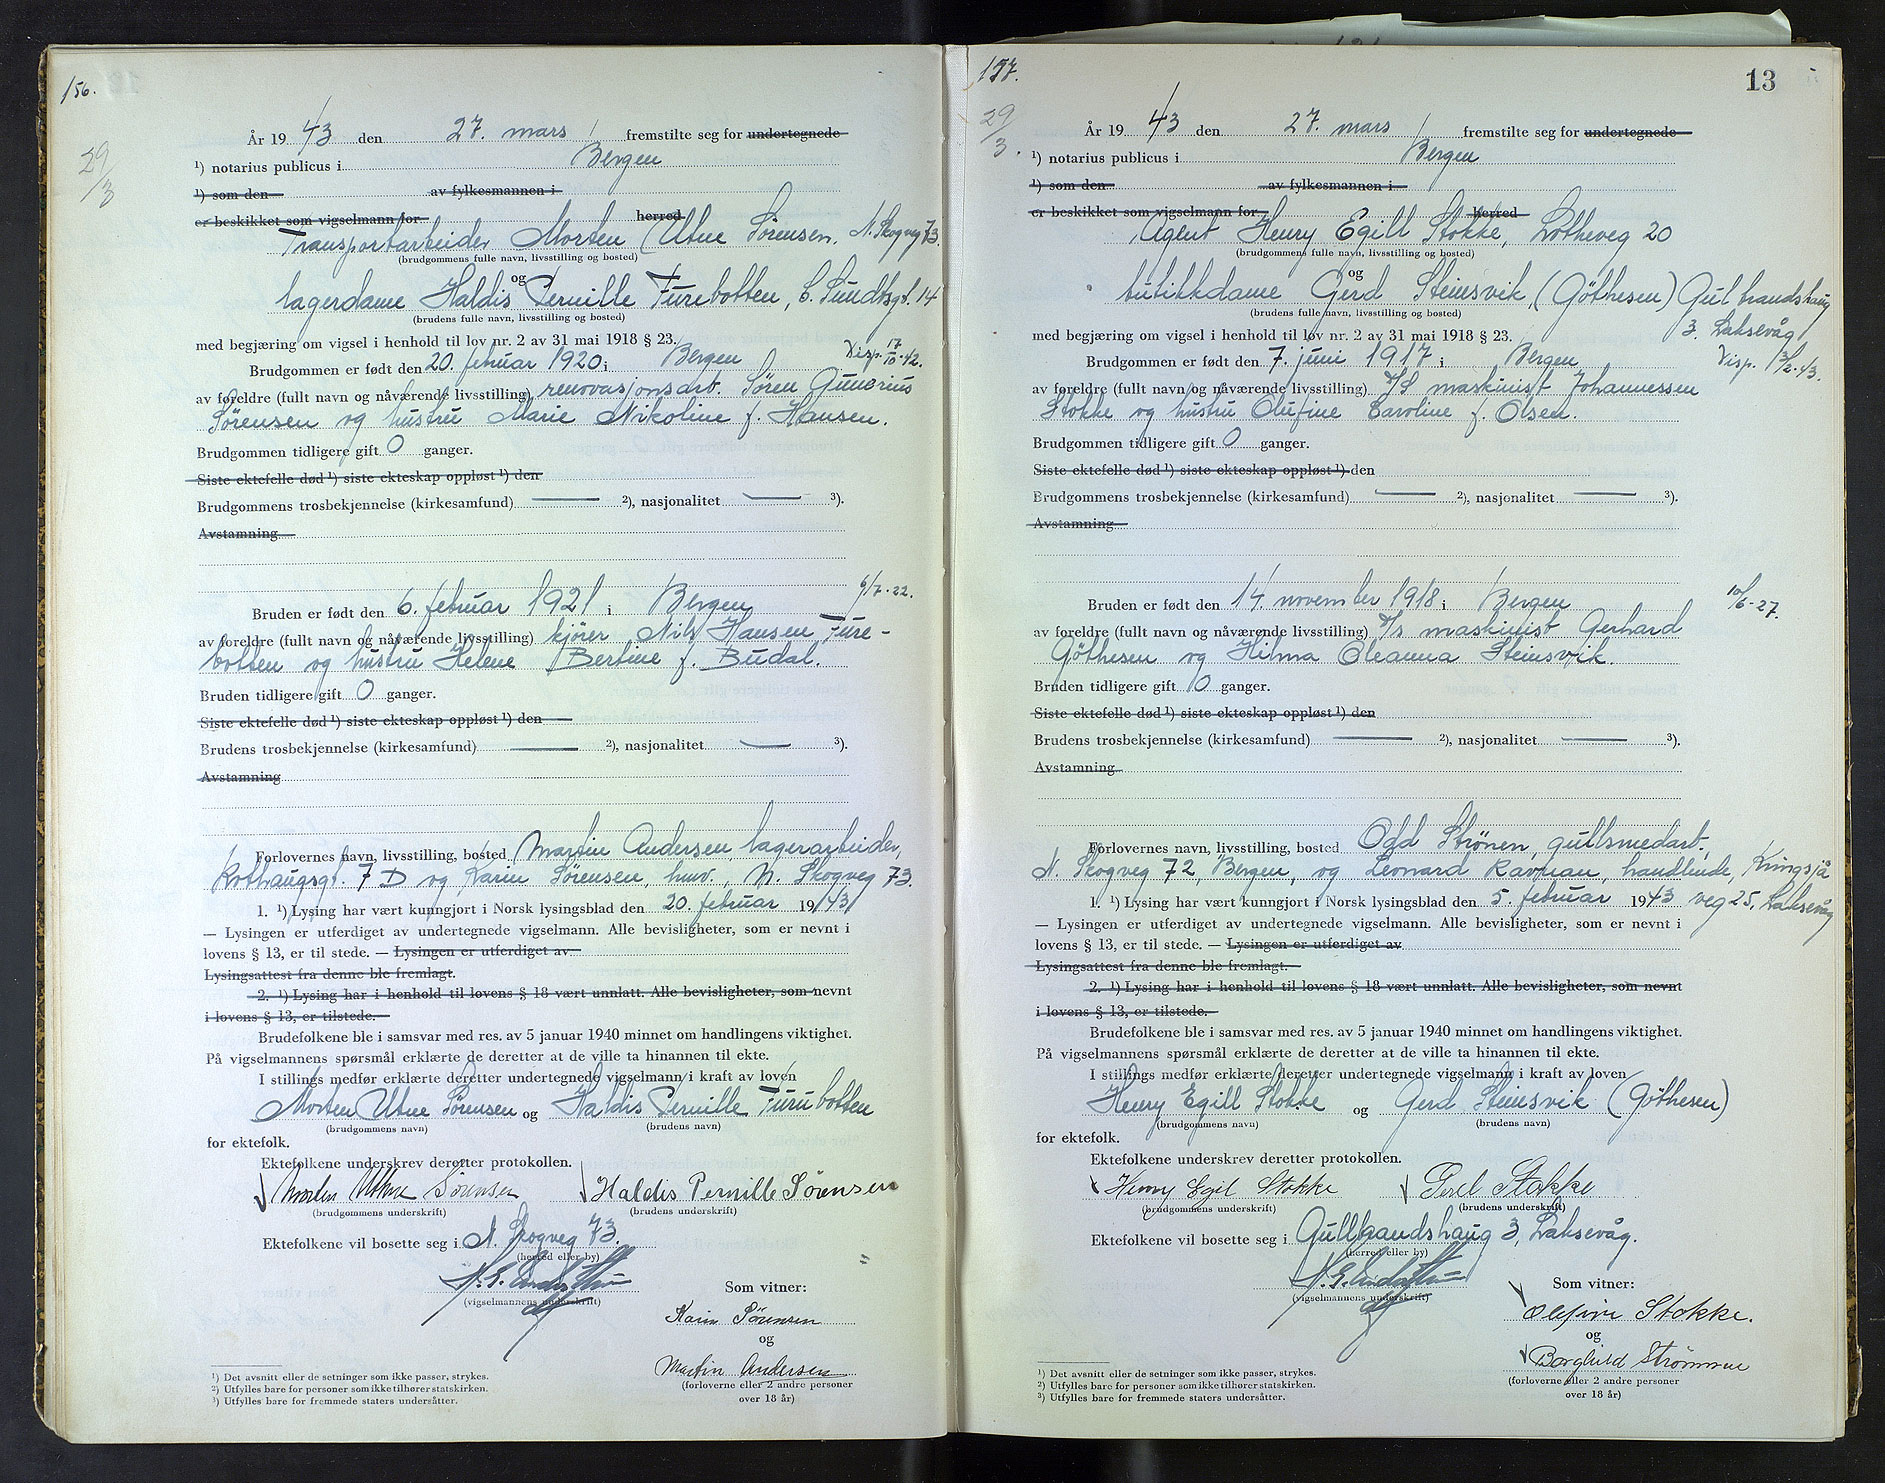 156.
29/3
År 1943 den 27. mars fremstilte seg for undertegnede
¹) notarius publicus i Bergen
¹) som den av fylkesmannen i
er beskikket som vigselmann for herred
Transportarbeider Morten Utne Sørensen, N. Skogveg 73.
(brudgommens fulle navn, livsstilling og bosted)
og
lagerdame Haldis Pernille Furebotten, C. Sundtsgt. 14
(brudens fulle navn, livsstilling og bosted)
med begjæring om vigsel i henhold til lov nr. 2 av 31 mai 1918 § 23.
Disp. 17/10-42.
Brudgommen er født den 20. februar 1920 i Bergen
av foreldre (fullt navn og nåværende livsstilling) renovasjonsarb. Søren Gunerius
Sørensen og hustru Marie Nikoline f. Hansen.
Brudgommen tidligere gift 0 ganger.
Siste ektefelle død ¹) siste ekteskap oppløst ¹) den
Brudgommens trosbekjennelse (kirkesamfund) ²), nasjonalitet ³).
Avstamning
9/7-22.
Bruden er født den 6. februar 1921 i Bergen
av foreldre (fullt navn og nåværende livsstilling) kjører Nils Hansen Fure-
botten og hustru Helene Bertine f. Budal.
Bruden tidligere gift 0 ganger.
Siste ektefelle død ¹) siste ekteskap oppløst ¹) den
Brudens trosbekjennelse (kirkesamfund) ²), nasjonalitet ³).
Avstamning
Forlovernes navn, livsstilling, bosted Martin Andersen, lagerarbeider,
Rothaugsgt. 7 D og Karin Sørensen, hmv., N. Skogveg 73.
1. ¹) Lysing har vært kunngjort i Norsk lysingsblad den 20. februar 1943
— Lysingen er utferdiget av undertegnede vigselmann. Alle bevisligheter, som er nevnt i
lovens § 13, er til stede. — Lysingen er utferdiget av
Lysingsattest fra denne ble fremlagt.
2. ¹) Lysing har i henhold til lovens § 18 vært unnlatt. Alle bevisligheter, som nevnt
i lovens § 13, er tilstede.
Brudefolkene ble i samsvar med res. av 5 januar 1940 minnet om handlingens viktighet.
På vigselmannens spørsmål erklærte de deretter at de ville ta hinannen til ekte.
I stillings medfør erklærte deretter undertegnede vigselmann i kraft av loven
Morten Utne Sørensen og Haldis Pernille Furubotten
(brudgommens navn) (brudens navn)
for ektefolk.
Ektefolkene underskrev deretter protokollen.
Morten Utne Sørensen Haldis Pernille Sørensen
(brudgommens underskrift) (brudens underskrift)
Ektefolkene vil bosette seg i N. Skogveg 73.
(herred eller by)
(vigselmannens underskrift)
Som vitner:
Karin Sørensen
og
Martin Andersen
(forloverne eller 2 andre personer
over 18 år)
¹) Det avsnitt eller de setninger som ikke passer, strykes.
²) Utfylles bare for personer som ikke tilhører statskirken.
³) Utfylles bare for fremmede staters undersåtter.
157.
13
29/3.
År 1943 den 27. mars fremstilte seg for undertegnede
¹) notarius publicus i Bergen
¹) som den av fylkesmannen i
er beskikket som vigselmann for herred
Agent Henry Egill Stokke, Lotheveg 20
(brudgommens fulle navn, livsstilling og bosted)
og
butikkdame Gerd Steinsvik, (Göthesen) Gulbrandshaug
(brudens fulle navn, livsstilling og bosted)
3. Laksevåg
med begjæring om vigsel i henhold til lov nr. 2 av 31 mai 1918 § 23.
Brudgommen er født den 7. juni 1917 i Bergen
Disp. 3/2-43.
av foreldre (fullt navn og nåværende livsstilling) D/S maskinist Johannessen
Stokke og hustru Olufine Caroline f. Olsen.
Brudgommen tidligere gift 0 ganger.
Siste ektefelle død ¹) siste ekteskap oppløst ¹) den
Brudgommens trosbekjennelse (kirkesamfund) ²), nasjonalitet ³).
Avstamning
10/6-27.
Bruden er født den 14. november 1918 i Bergen
av foreldre (fullt navn og nåværende livsstilling) D/S maskinist Gerhard
Göthesen og Hilma Oleanna Steinsvik.
Bruden tidligere gift 0 ganger.
Siste ektefelle død ¹) siste ekteskap oppløst ¹) den
Brudens trosbekjennelse (kirkesamfund) ²), nasjonalitet ³).
Avstamning
Forlovernes navn, livsstilling, bosted Odd Strönen, gullsmedarb.,
N. Skogveg 72, Bergen, og Leonard Ravnan, handlende, Kringsjå
1. ¹) Lysing har vært kunngjort i Norsk lysingsblad den 5. februar 1943 veg 25, Laksevåg
— Lysingen er utferdiget av undertegnede vigselmann. Alle bevisligheter, som er nevnt i
lovens § 13, er til stede. — Lysingen er utferdiget av
Lysingsattest fra denne ble fremlagt.
2. ¹) Lysing har i henhold til lovens § 18 vært unnlatt. Alle bevisligheter, som nevnt
i lovens § 13, er tilstede.
Brudefolkene ble i samsvar med res. av 5 januar 1940 minnet om handlingens viktighet.
På vigselmannens spørsmål erklærte de deretter at de ville ta hinannen til ekte.
I stillings medfør erklærte deretter undertegnede vigselmann i kraft av loven
Henry Egill Stokke og Gerd Steinsvik (Göthesen)
(brudgommens navn) (brudens navn)
for ektefolk.
Ektefolkene underskrev deretter protokollen.
Henry Egil Stokke Gerd Stokke
(brudgommens underskrift) (brudens underskrift)
Ektefolkene vil bosette seg i Gullbrandshaug 3, Laksevåg.
(herred eller by)
(vigselmannens underskrift)
Som vitner:
Olufine Stokke.
og
Borghild Strømme
(forloverne eller 2 andre personer
over 18 år)
¹) Det avsnitt eller de setninger som ikke passer, strykes.
²) Utfylles bare for personer som ikke tilhører statskirken.
³) Utfylles bare for fremmede staters undersåtter.